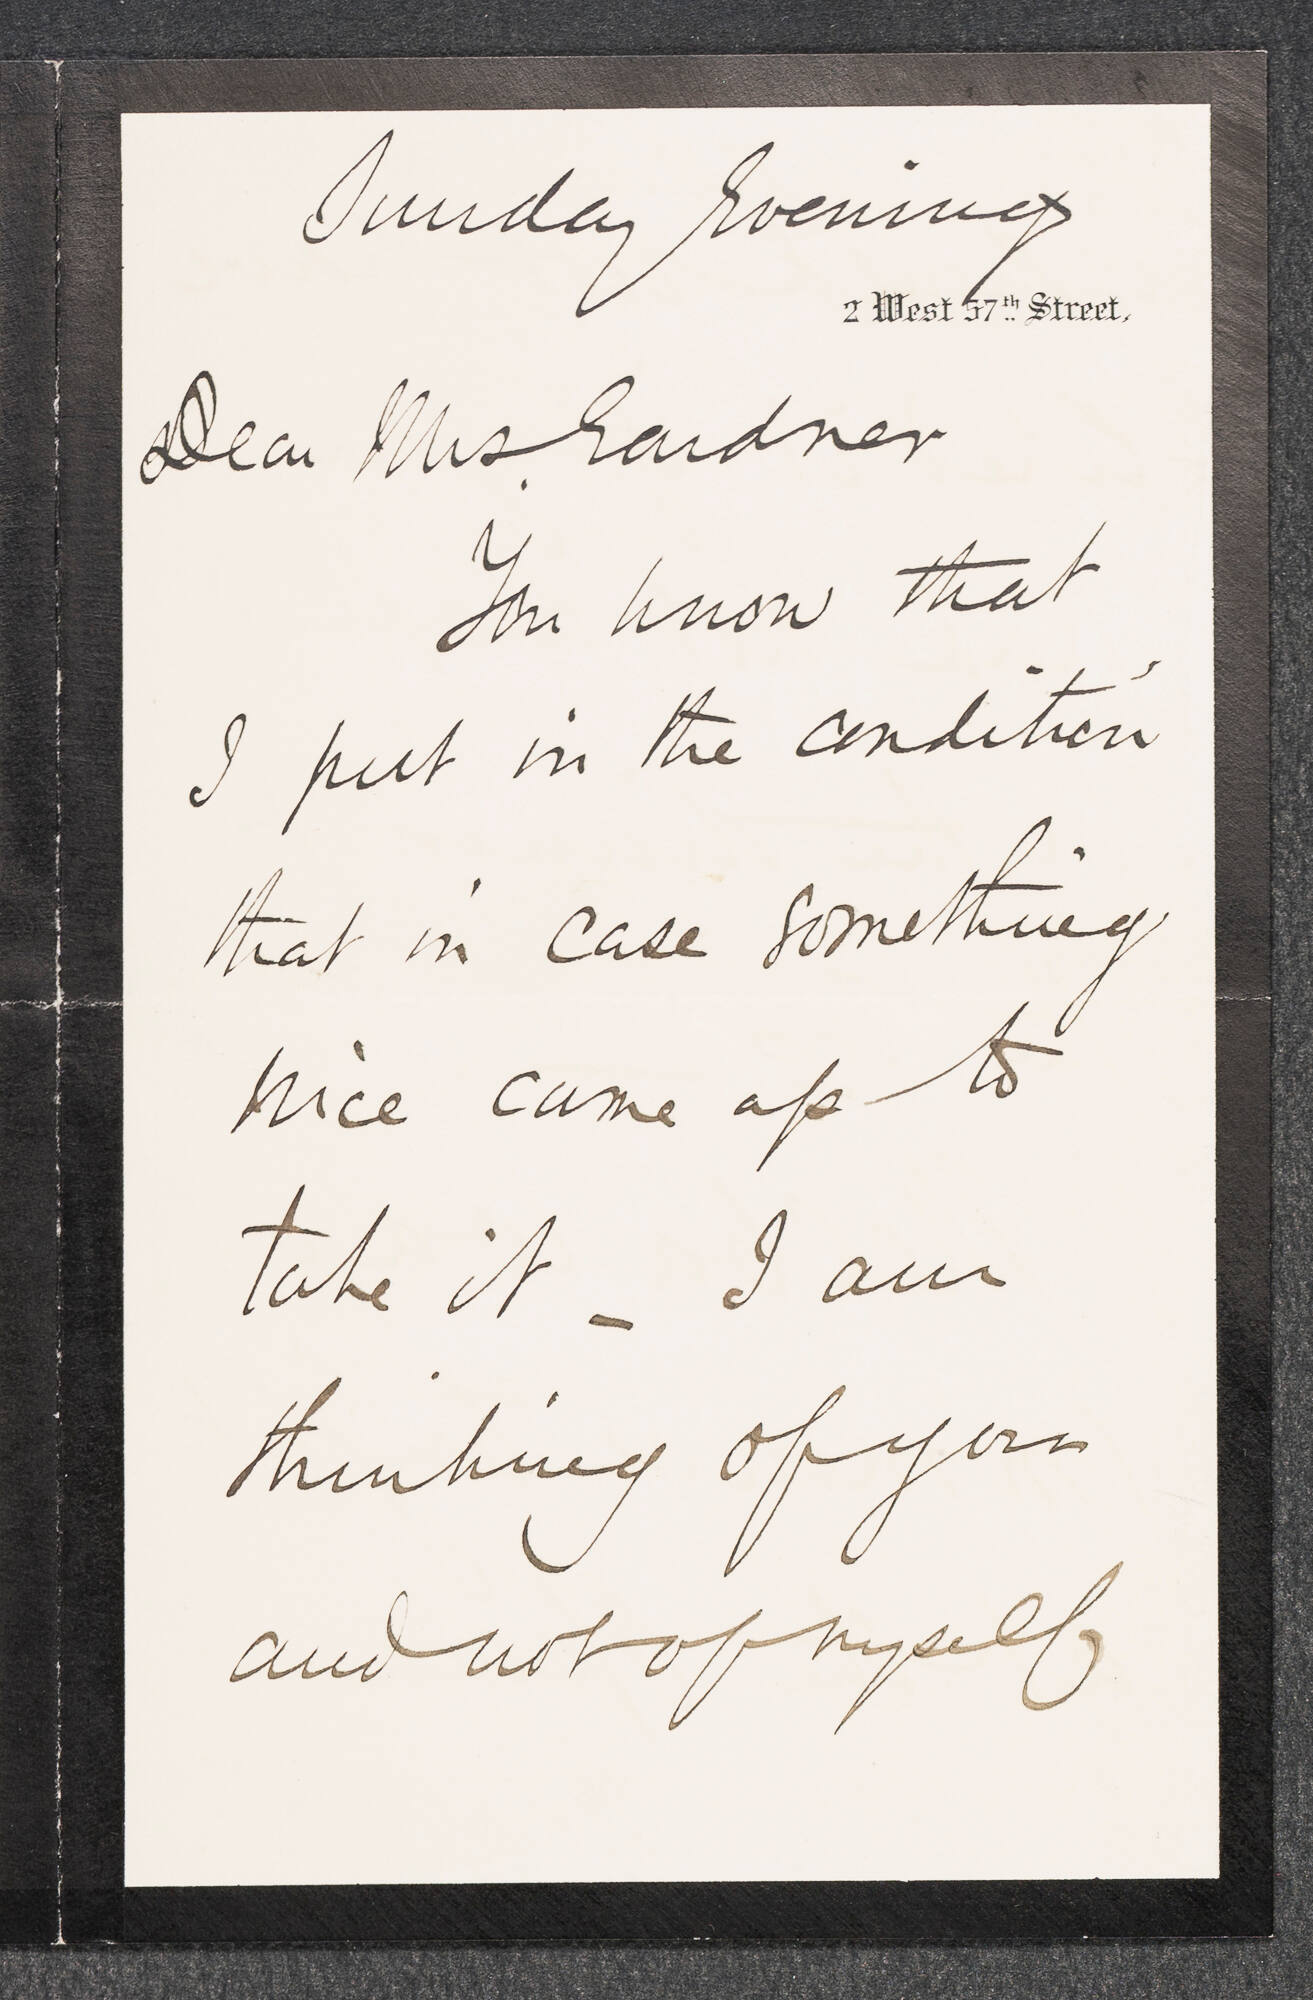 Sunday Evening
2 West 57th Street.
Dear Mrs Gardner
You know that
I put in the condition
that in case something
nice came up to
take it – I am
thinking of you
and not of myself